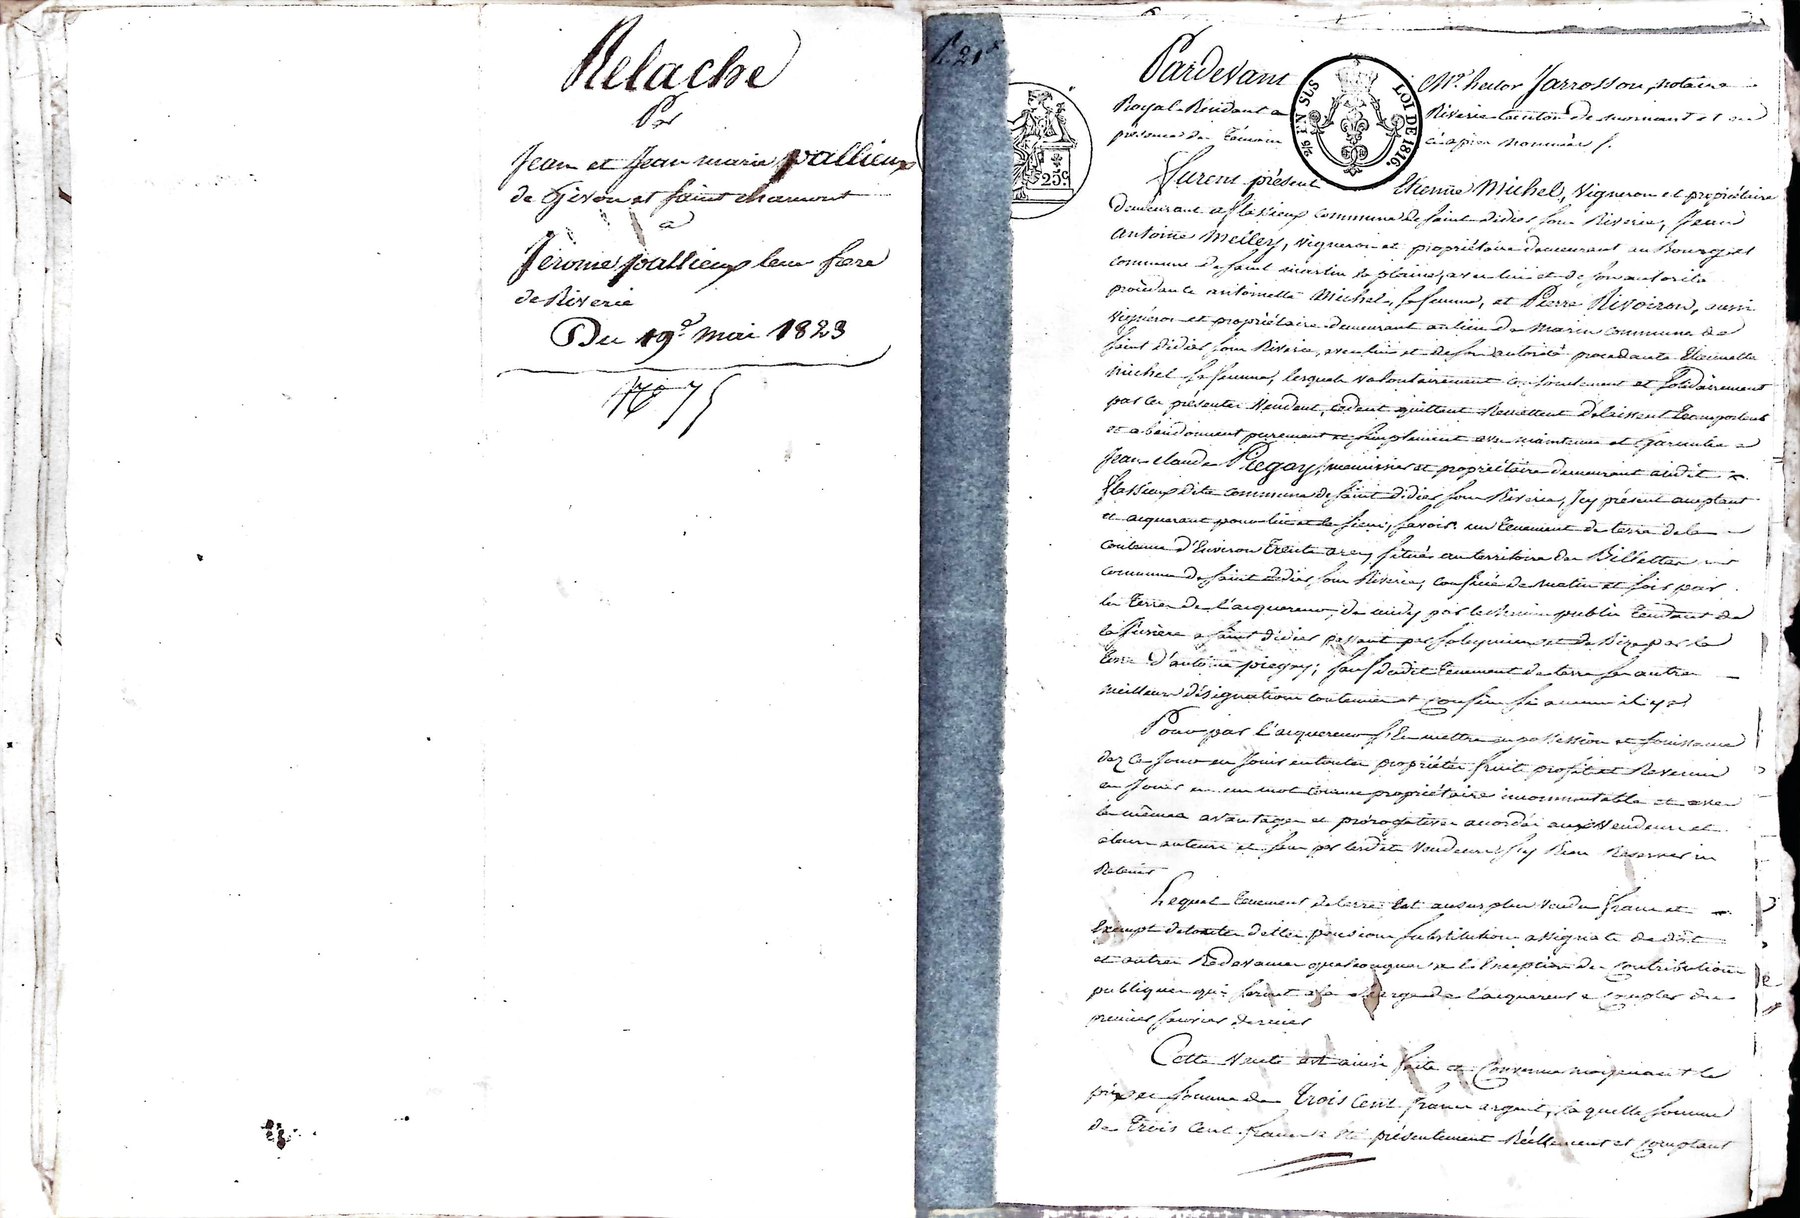 Relache
Par
Jean et Jean marie vallieux
de Givors et saint chamont
a
Jérome vallieux leur frere
de Riverie
Du 19e mai 1823
No 75
R. 21
25c
EN SUS
LOI DE 1816.
Pardevant Me hector Jarrosson, notaire
Royal Résidant a Riverie canton de mornant et en
présence des témoins ci après nommés
Furent présent Etienne Michel, vigneron et propriétaire
demeurant a flassieux commune de saint didier sous Riverie, Jean
Antoine Meilley, vigneron et propriétaire demeurant au Bourg et
commune de saint martin la plaine, avec lui et de son autorité
procédante antoinette Michel, sa femme, et Pierre Rivoiron, aussi
vigneron et propriétaire demeurant au lieu de Marin commune de
saint didier sous Riverie, avec lui et de son autorité procedante Etiennette
Michel sa femme, lesquels volontairement conjointement et solidairement
par ces présentes vendent, cedent quittent Remettent delaissent transportent
et abandonnent purement et simplement avec maintenue et garantie a
Jean claude Piegay, meunier et propriétaire demeurant audit
flassieux dite commune de saint didier sous Riverie, Icy présent acceptant
et acquerant pour lui et les siens, savoir un tenement de terre de la
contenue d'Environ trente ares, situé au territoire des Billettes
commune de saint didier sous Riverie, confiné de matin et soir par
les terres de l'acquereur, de midy par le chemin public tendant de
a saint didier passant par et de Bize par la
terre d'antoine piegay; sauf dudit tenement de terre ses autres
meilleurs désignations contenues et confins si aucuns il y a
Pour par l'acquereur s'En mettre en possession et Jouissance
dez ce Jour en Jouir en toutes propriétés fruits profits et Revenus
en Jouir en un mot comme propriétaire incommutable et avec
les mêmes avantages et prérogatives accordés aux vendeurs et
a leurs auteurs et sans par lesdits vendeurs s'y Rien Reserver ni
Retenir
Lequel tenement de terre Est au surplus vendu franc et
Exempt de toutes dettes pensions substitutions assignats de dot
et autres Redevances quelconques a l'Exception des contributions
publiques qui seront a la charge de l'acquereur a compter du
premier janvier dernier
Cette vente est ainsi faite et Convenue moyenant le
prix et somme de Trois Cent francs argent, laquelle somme
de Trois Cent francs a été présentement Réellement et comptant